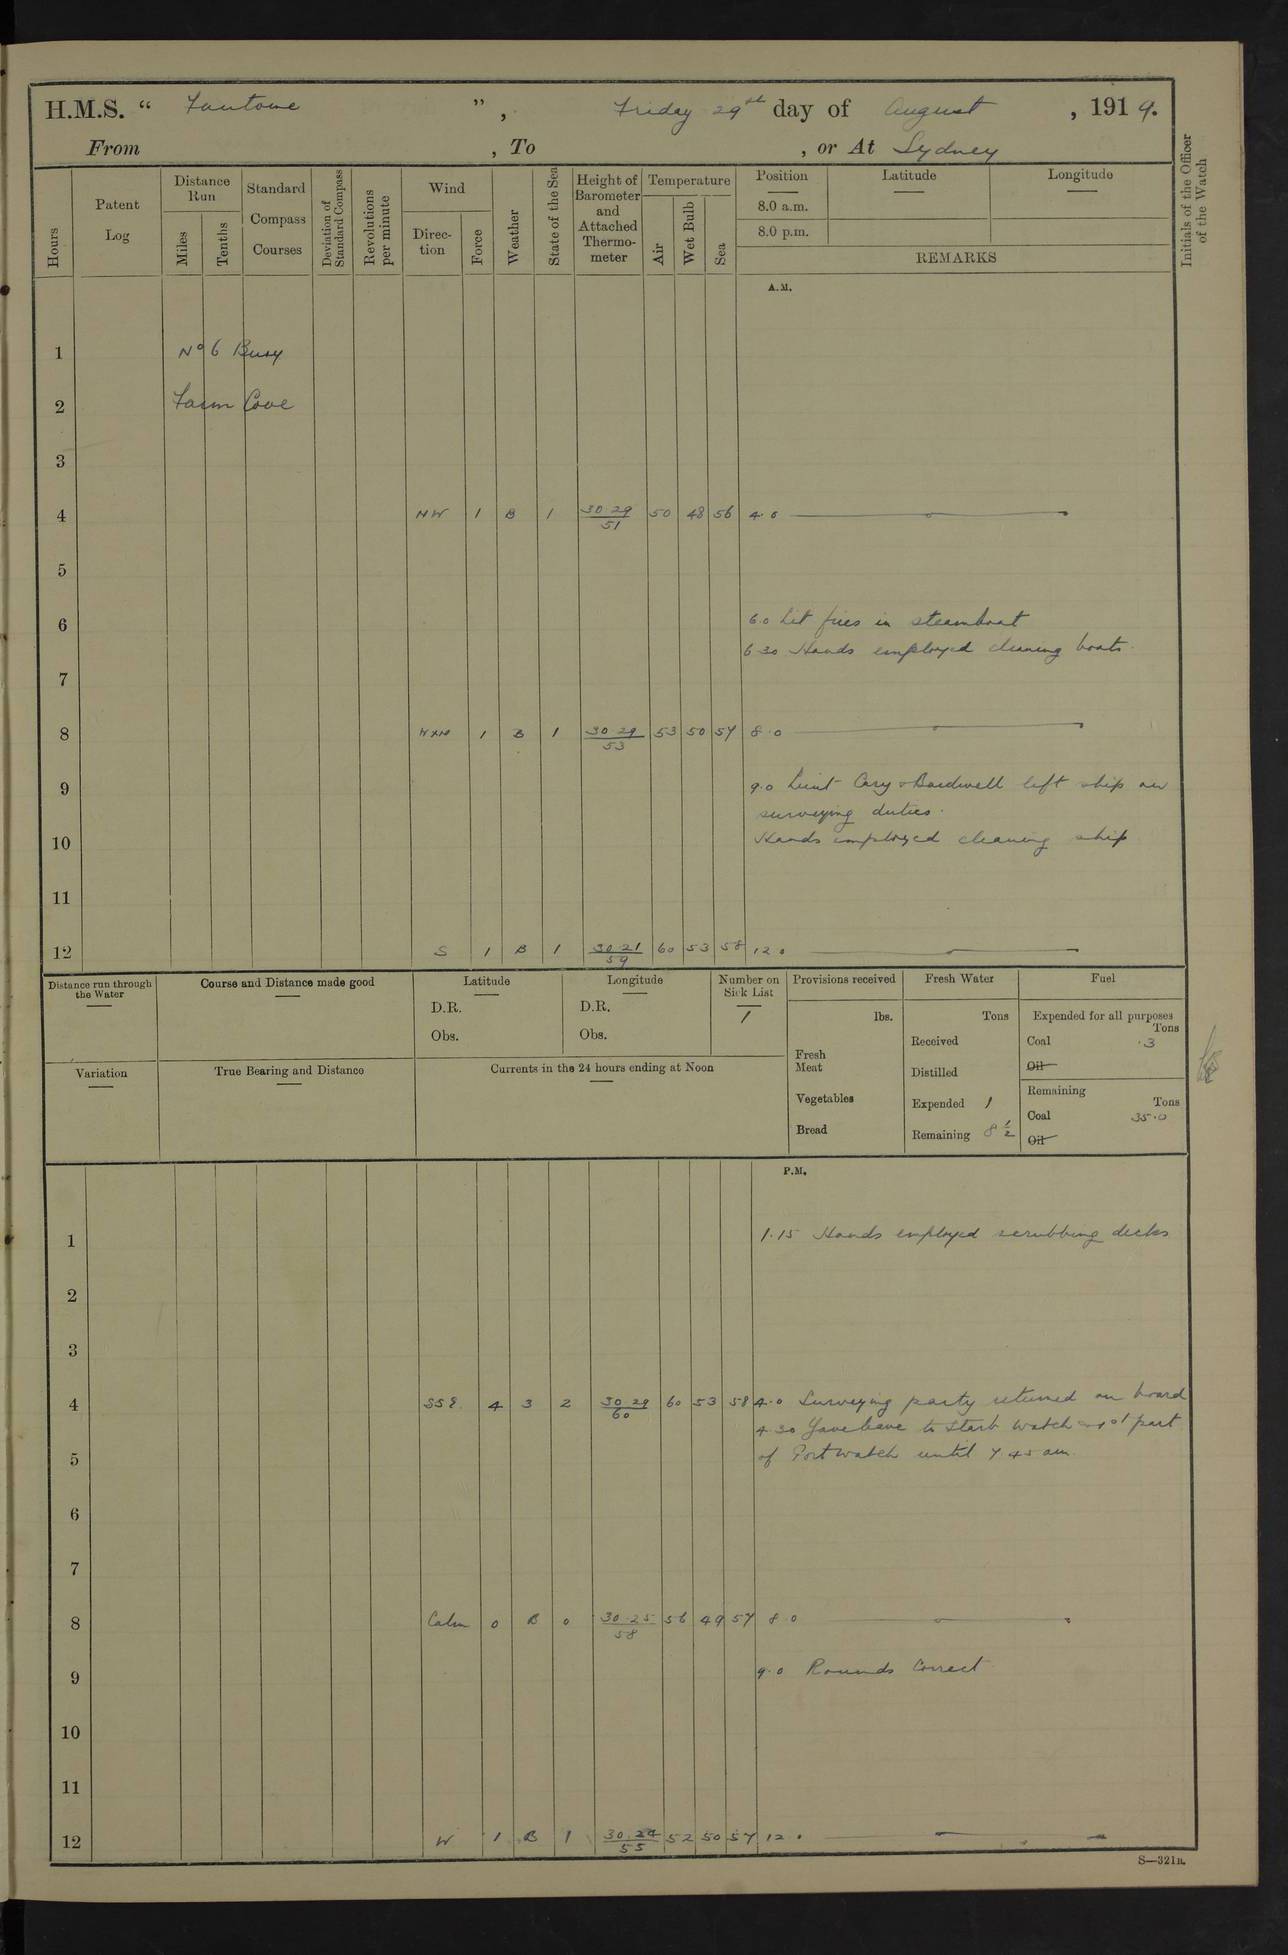 H.M.S. “ Fantome ” , Friday 29th day of August , 1919.
From , To , or At Sydney
Hours
Patent Log
Distance Run
Miles
Tenths
Standard Compass Courses
Deviation of Standard Compass
Revolutions per minute
Wind
Direc-tion
Force
Weather
State of the Sea
Height of Barometer and Attached Thermo-meter
Temperature
Air
Wet Bulb
Sea
Position
8.0 a.m.
8.0 p.m.
Latitude
Longitude
REMARKS
Initials of the Officer of the Watch
A.M.
1 No 6 Buoy
2 Farm Cove
3
4 NW 1 B 1 30.29 51 50 48 56 4.0
5
6 6.0 Lit fires in steamboat
6.30 Hands employed cleaning boats.
7
8 1 B 1 30.29 53 53 50 57 8.0
9 9.0 Lieut Cary & Bardwell left ship on
surveying duties.
10 Hands employed cleaning ship
11
12 S 1 B 1 30.21 59 60 53 58 12.0
Distance run through the Water
Course and Distance made good
Latitude
D.R.
Obs.
Longitude
D.R.
Obs.
Number on Sick List
1
Provisions received
lbs.
Fresh Meat
Vegetables
Bread
Fresh Water
Tons
Received
Distilled
Expended 1
Remaining 8 1/2
Fuel
Expended for all purposes
Tons
Coal .3
Oil
Remaining
Tons
Coal 35.0
Oil
Variation
True Bearing and Distance
Currents in the 24 hours ending at Noon
P.M.
1 1.15 Hands employed scrubbing decks
2
3
4 SSE 4 3 2 30.29 60 60 53 58 4.0 Surveying party returned on board
4.30 Gave leave to Starb Watch 1st part
5 of Port watch until 7.45 am.
6
7
8 Calm 0 B 0 30.25 58 56 49 57 8.0
9 9.0 Rounds Correct
10
11
12 W 1 B 1 30.24 55 52 50 57 12.0
S—321B.